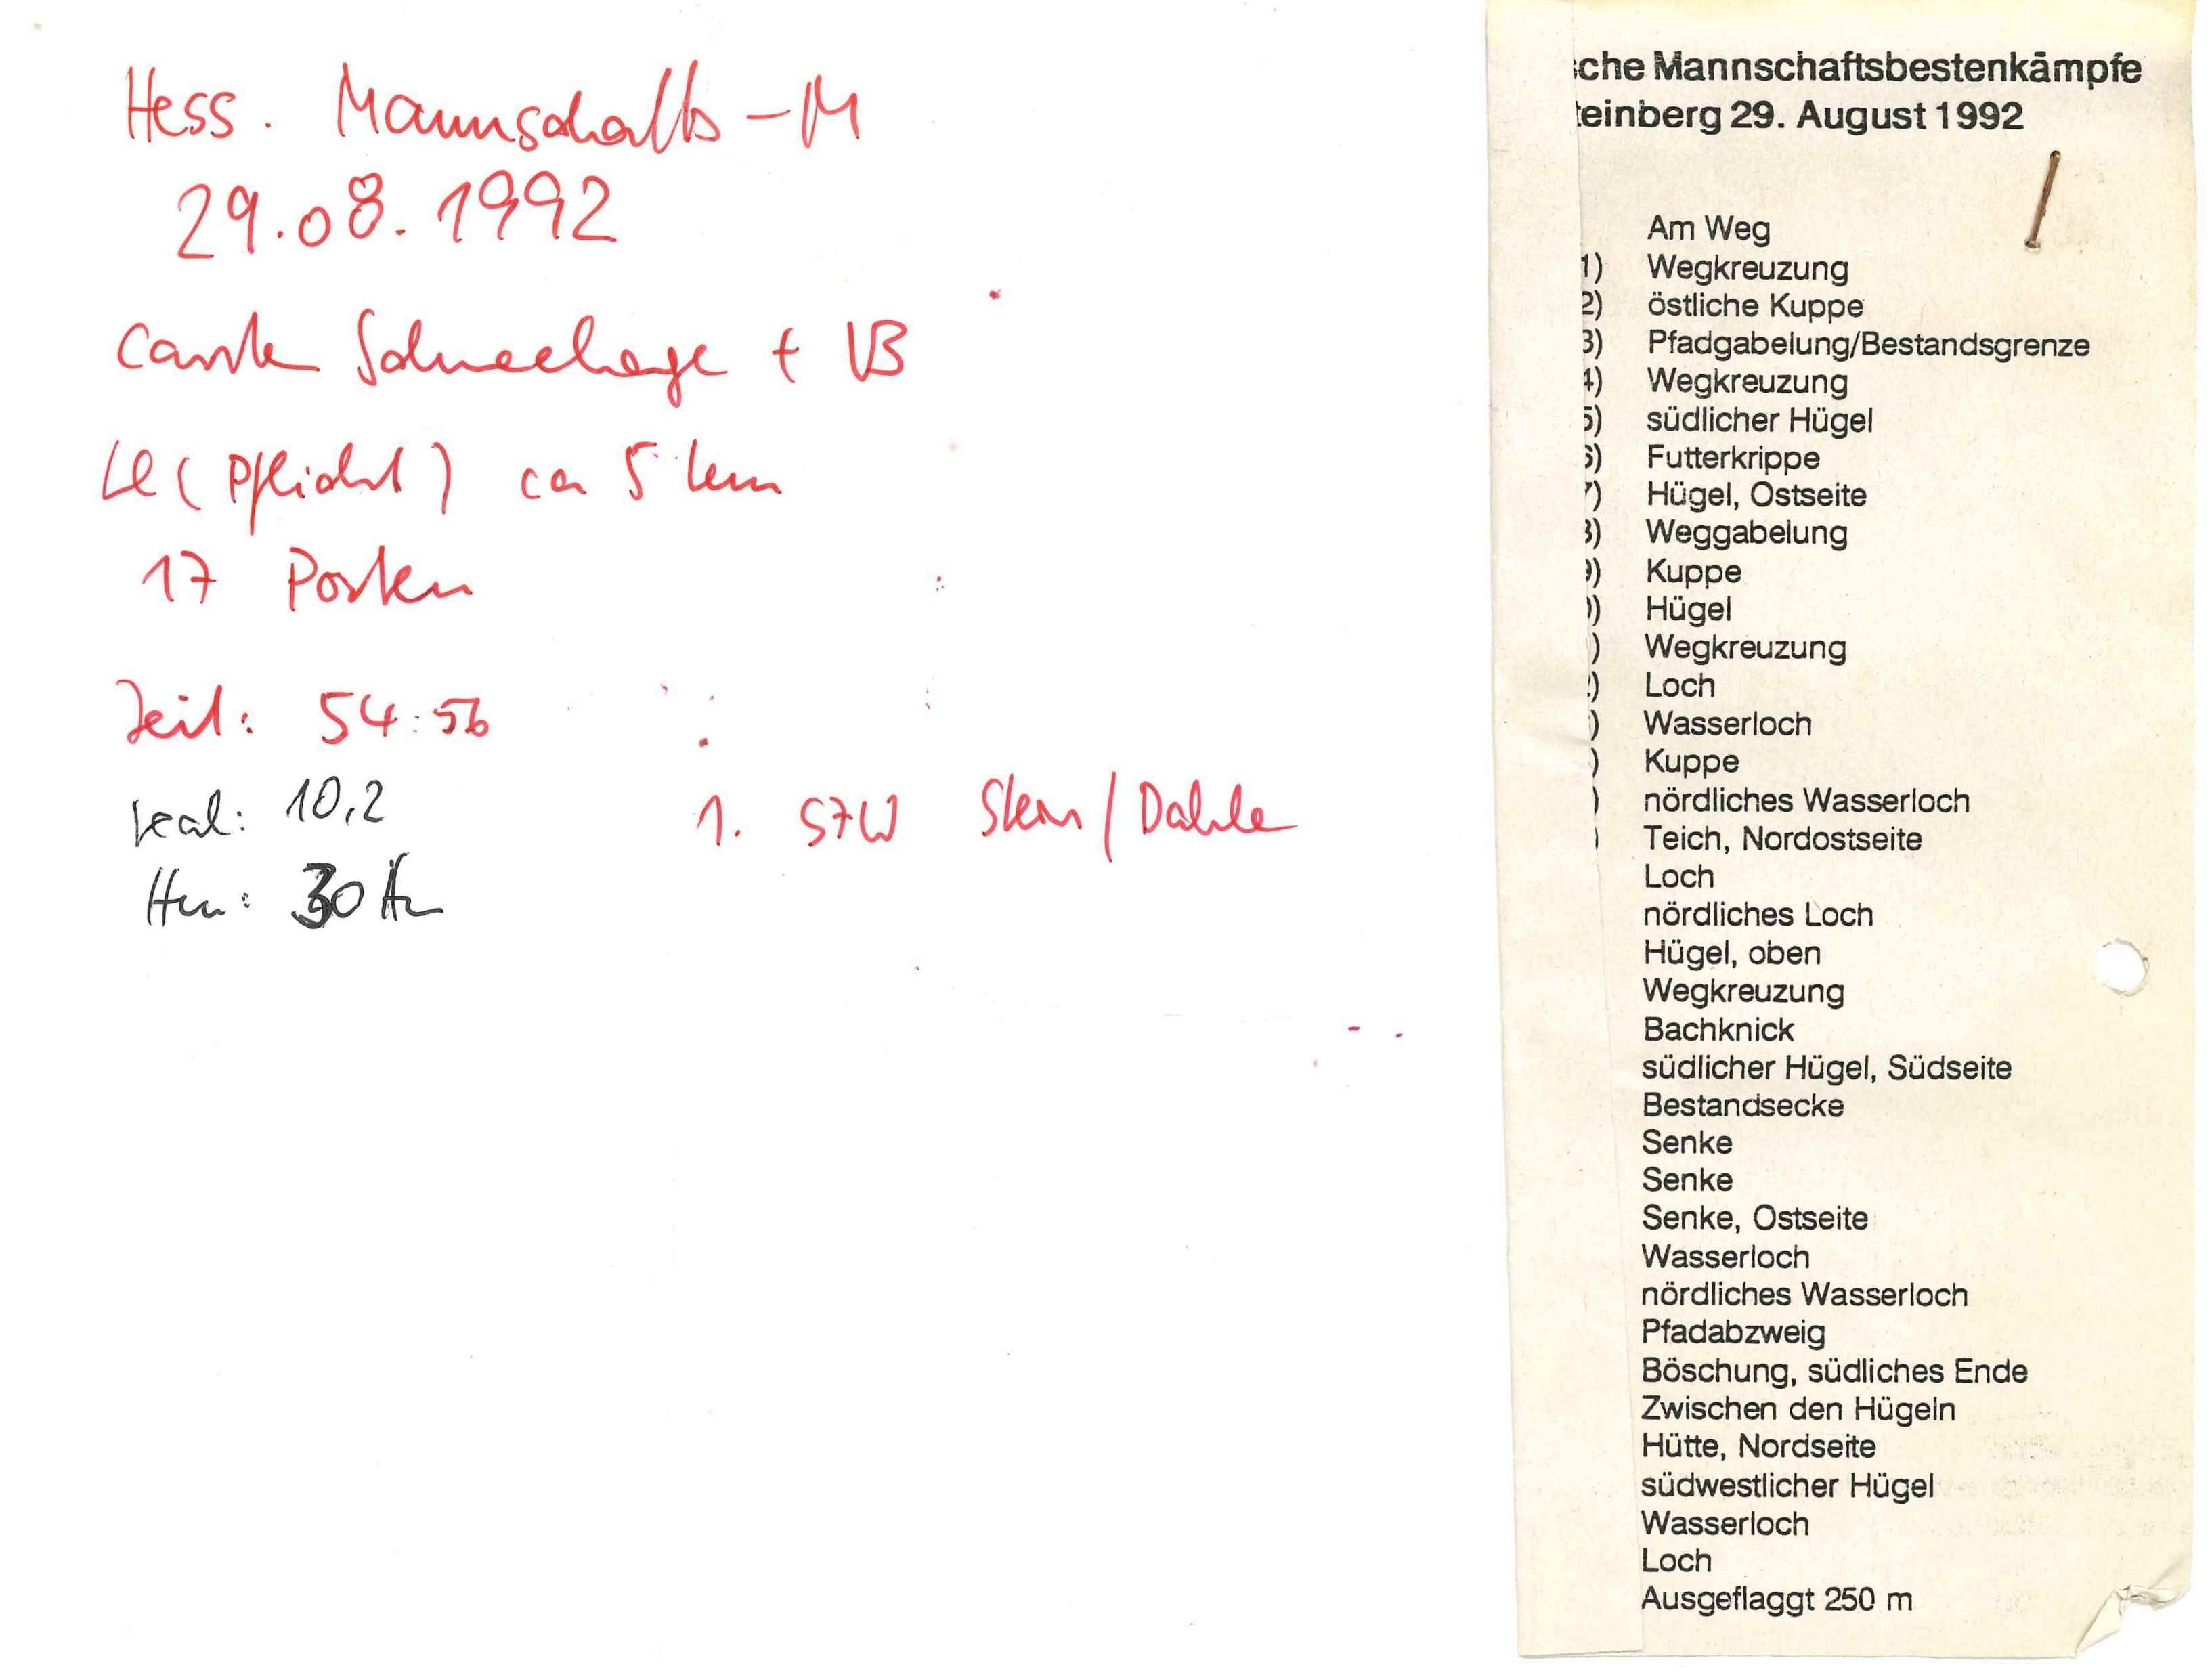 Hess. Mannschafts-M
29.08.1992
Carsten Schneehage + VB
LE (Pflicht) ca 5 km
17 Posten
Zeit: 54:56
real: 10,2
Hm: 30 Hm
1. STW Stein/Dahle
sche Mannschaftsbestenkämpfe
teinberg 29. August 1992
Am Weg
1) Wegkreuzung
2) östliche Kuppe
3) Pfadgabelung/Bestandsgrenze
4) Wegkreuzung
5) südlicher Hügel
6) Futterkrippe
7) Hügel, Ostseite
8) Weggabelung
9) Kuppe
) Hügel
) Wegkreuzung
) Loch
) Wasserloch
) Kuppe
) nördliches Wasserloch
) Teich, Nordostseite
Loch
nördliches Loch
Hügel, oben
Wegkreuzung
Bachknick
südlicher Hügel, Südseite
Bestandsecke
Senke
Senke
Senke, Ostseite
Wasserloch
nördliches Wasserloch
Pfadabzweig
Böschung, südliches Ende
Zwischen den Hügeln
Hütte, Nordseite
südwestlicher Hügel
Wasserloch
Loch
Ausgeflaggt 250 m